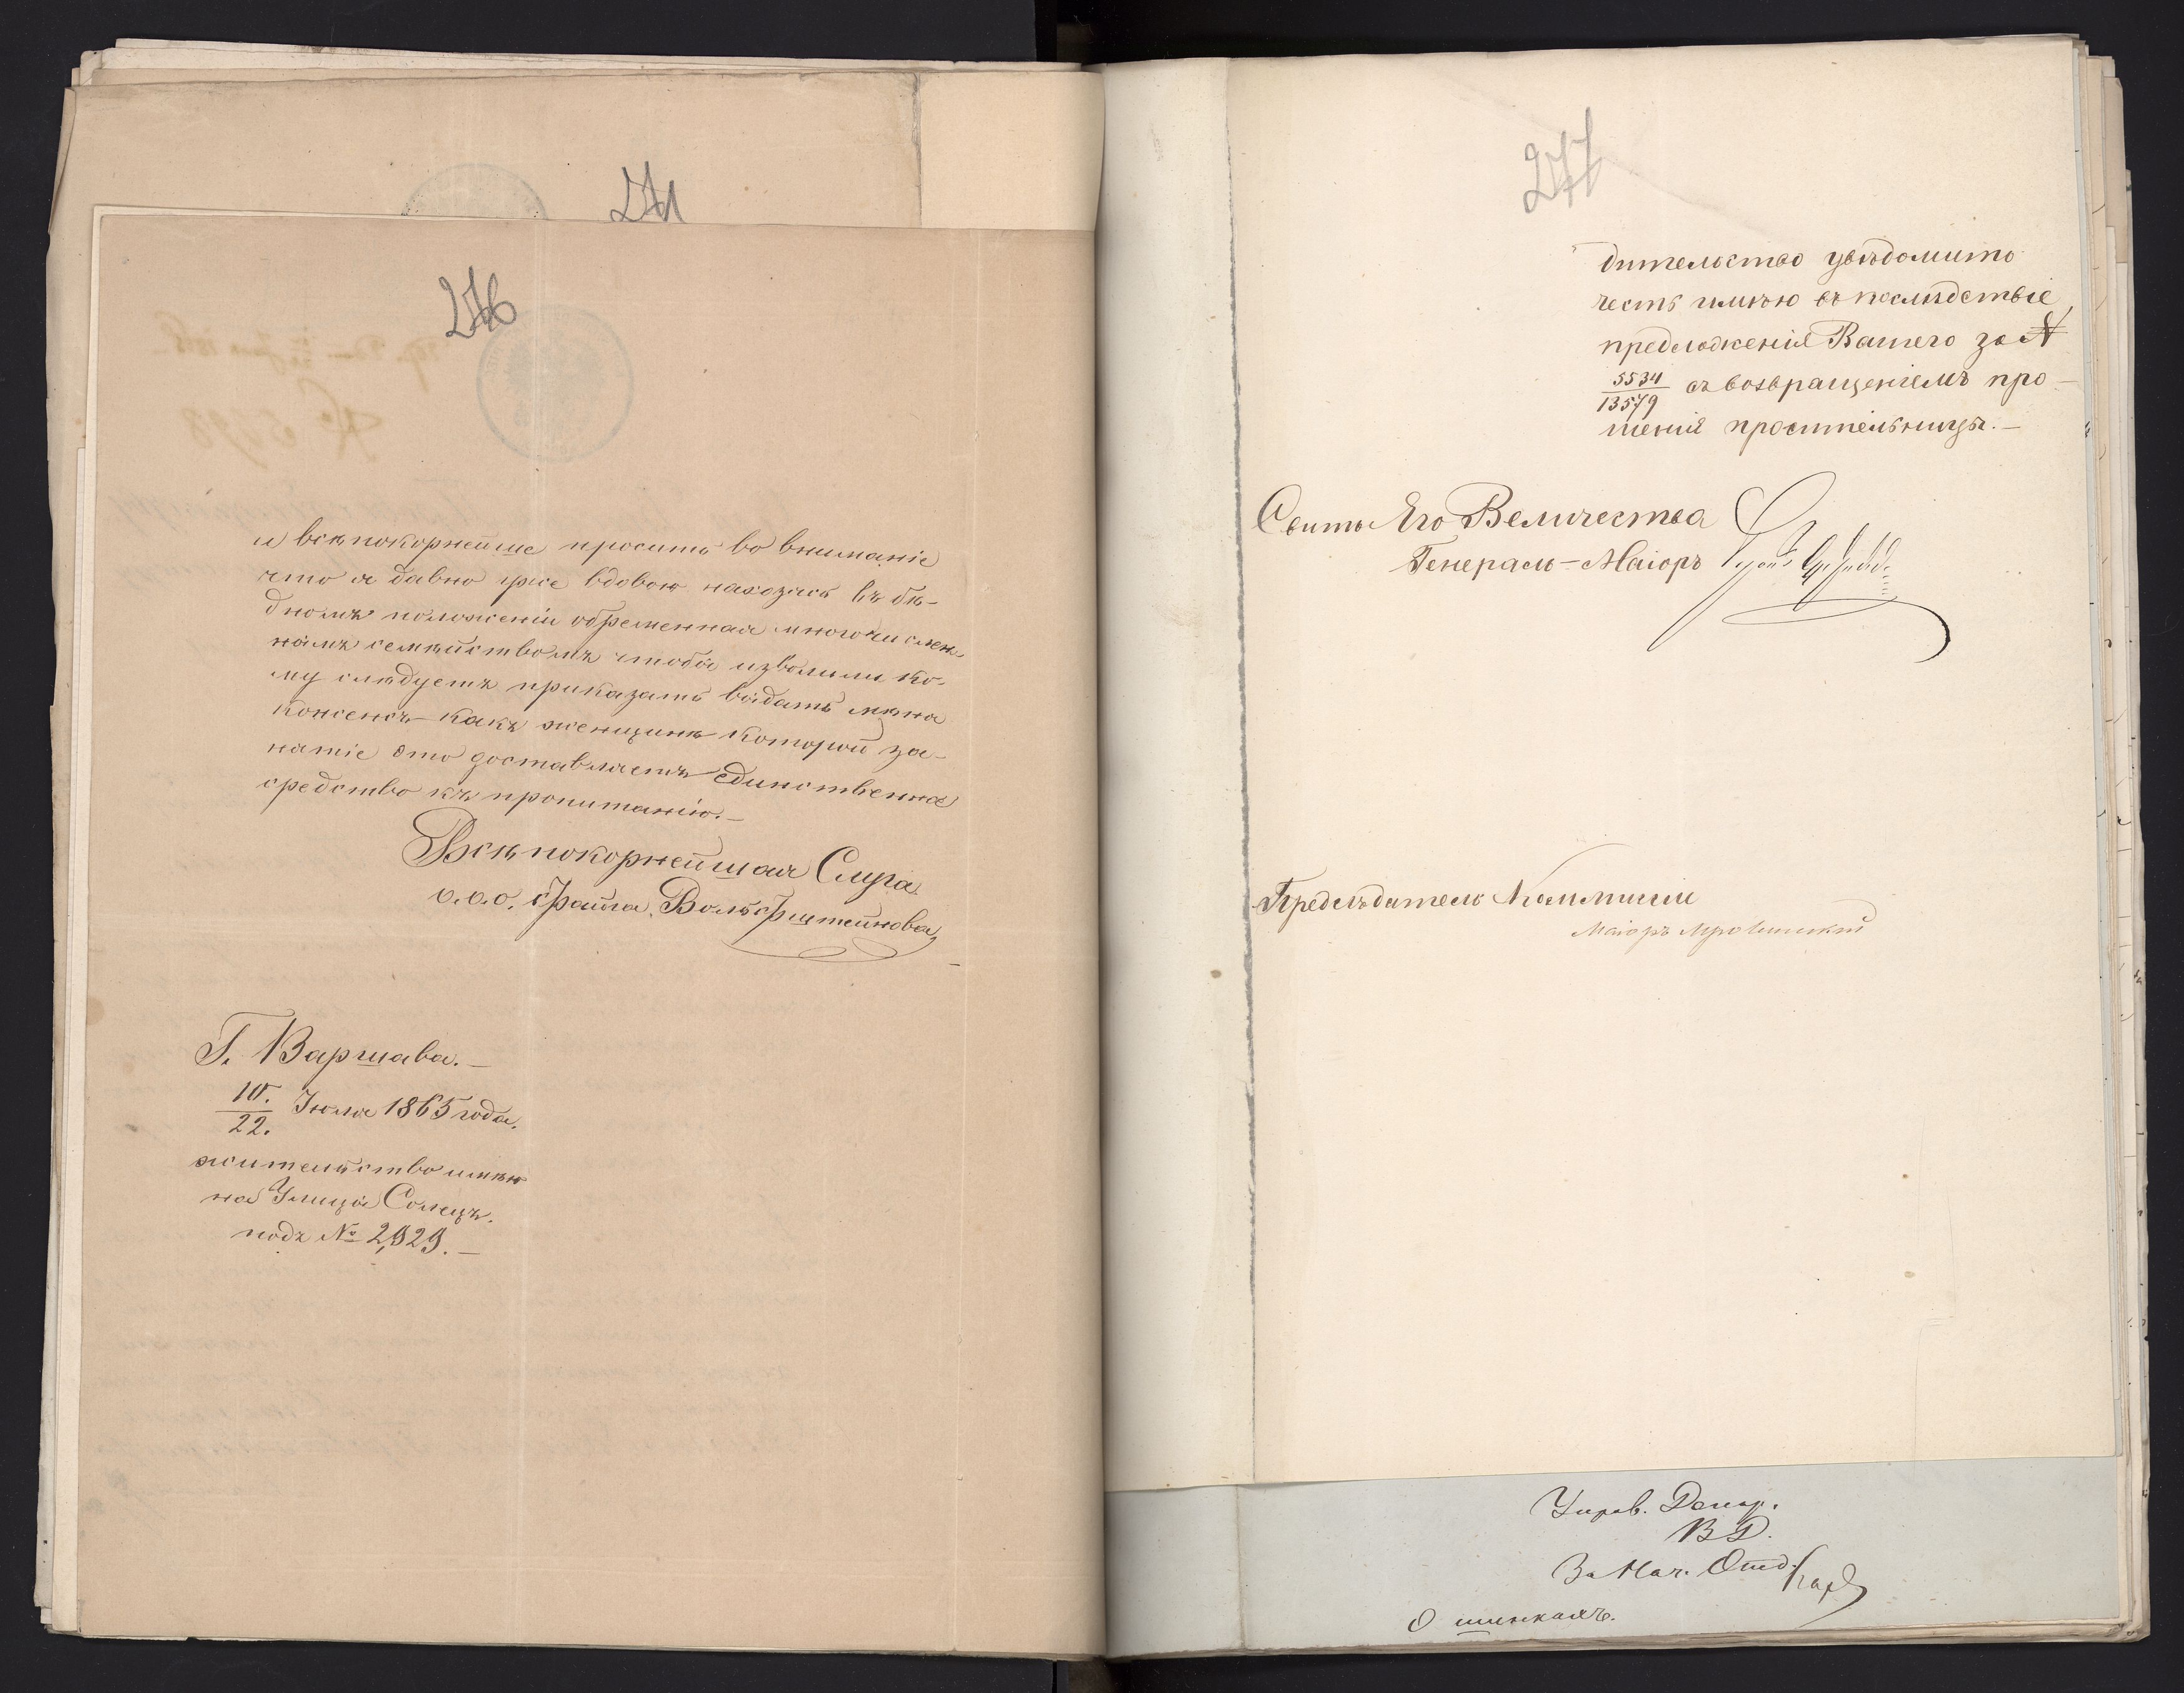 271
276
и всѣпокорнейше просить во вниманіе
что я давно уже вдовою находясь въ бѣ-
дномъ положеніи обремененная многочислен-
нымъ семѣйствомъ чтобы изволили ко-
му слѣдуетъ приказать выдать мѣнѣ
консенсъ какъ женщинѣ которой за-
натіе это доставляетъ единственна
средство къ пропитанію.—
Всѣпокорнейшая Слуга
о.о.о. Файга Вольфштейнова
Г. Варшава.—
10./22. Іюля 1865 года.
жительство имѣю
на Улицы Солецъ.
подъ № 2929.—
277
дительство увѣдомить
честь имѣю въ послѣдствіе
предложенія Вашего за №
5534/13579 съ возвращеніемъ про-
шенія просительницы.—
Свиты Его Величества
Генералъ-Маіоръ
Предсѣдатель Коммисіи
Маіоръ
Управ. Депар.
В Д.
За Нач. Отд.
О шинкахъ.